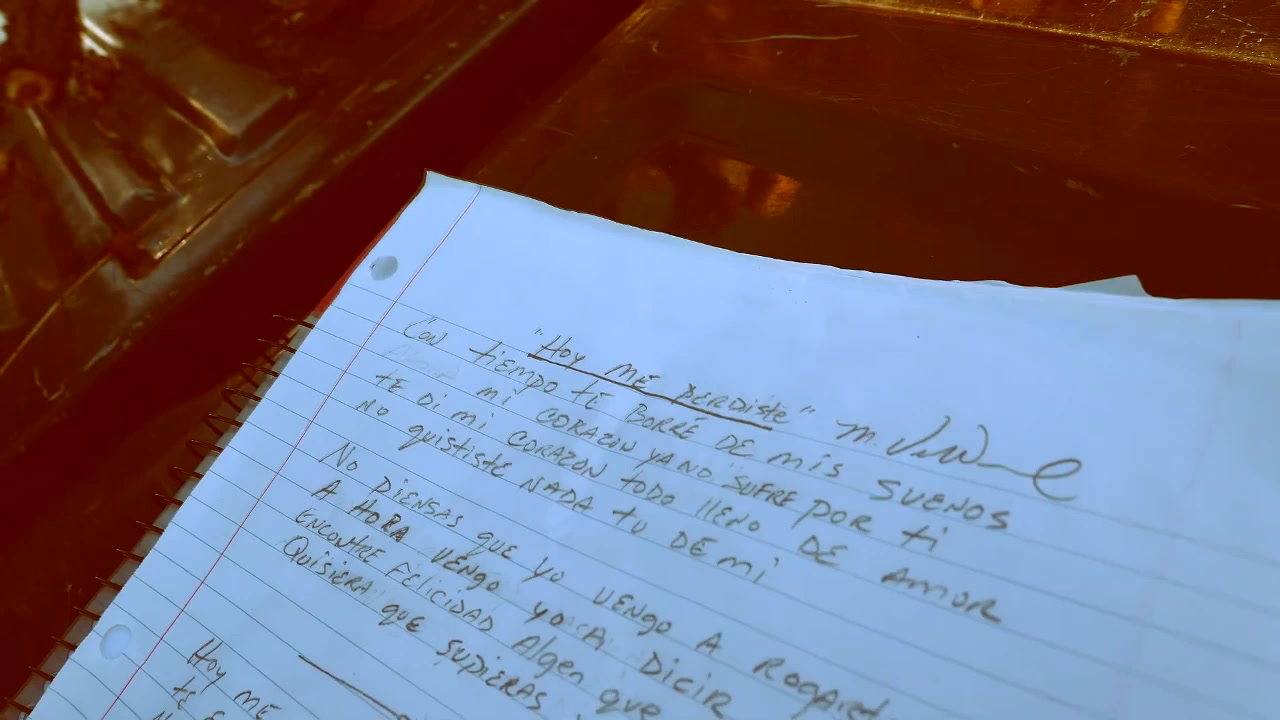 "Hoy ME PERDiste" M.
Con tiEMPO tE BORRÉ DE Mis SUENOS
Mi CORAZON YA NO SUFRE POR ti
tE Di Mi CORAZON todo llENO DE AMOR
NO quisistE NADA tU DE Mi
No PiENSAS quE Yo VENGO A ROGARtE
A HORA VENGO YO A DiCiR
ENCONtRE FEliCiDAD AlgEN quE
QUiSiERA quE SUPiERAS
Hoy ME
tE